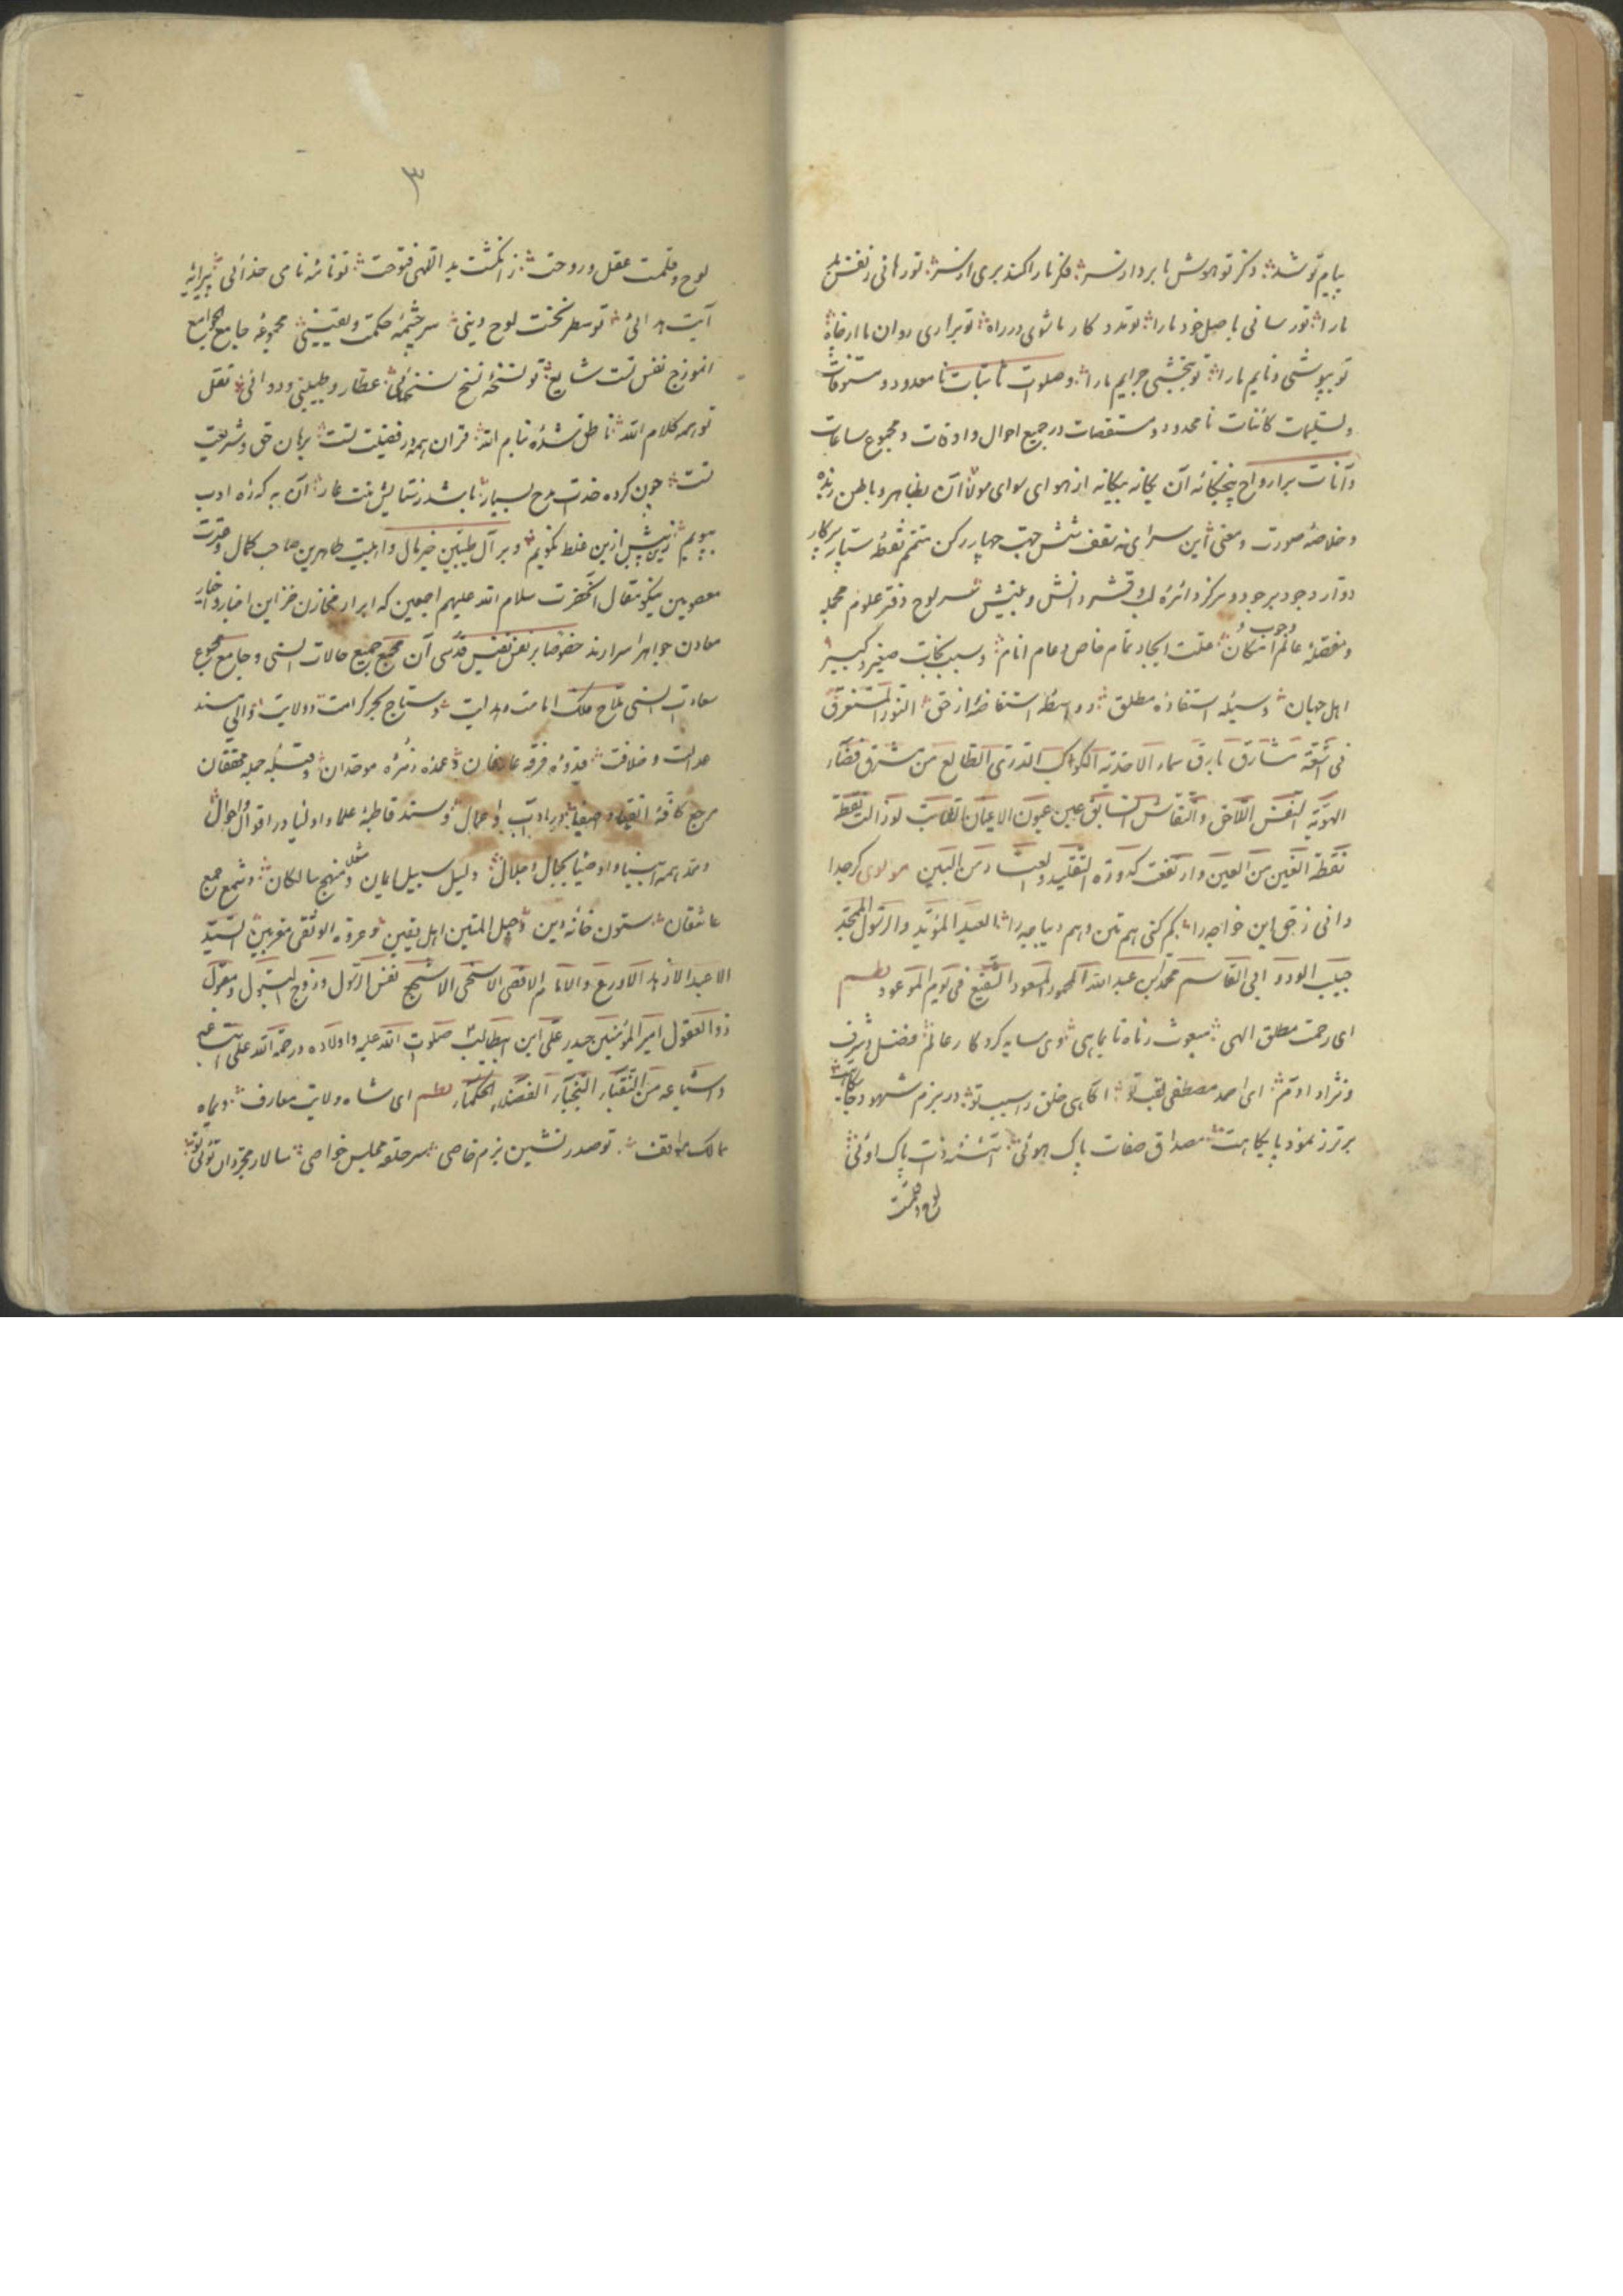 پیام تو شد ذکر تو هوش ما برد از سر فکر ما را کند بری از شر تو رهانی ز نفس
ما را تو رسانی باصل خود ما را تو مدد کار ما شوی در راه تو براری روان ما از چاه
تو بپوشی ذمایم ما را تو ببخشی جرایم ما را و صلوات نامیات نامعدود و مستوفات
و تسلیمات کائنات نامحدود و مستقصات در جمیع احوال و اوقات و مجموع ساعات
و آنات بر ارواح پنجگانه آن یگانه بیگانه از هوای سوای مولا آن بظاهر و باطن زنده
و خلاصه صورت و معنی این سرای نه سقف شش جهت چهار رکن متمم نقطه پرکار
دوار وجود بر جود و مرکز دائره لب و قشر دانش و بینش سر لوح دفتر علوم مجمله
و مفصله عالم وجوب و امکان علت ایجاد تمام خاص و عام انام و سبب نجات صغیر و کبیر
اهل جهان وسیله استفاده مطلق و واسطه استفاضه از حق النور المستغرق
فی اشعة مشارق بارق سماء الاحدیه الکوکب الدری الطالع من مشرق فضاء
الهویة النفس اللاحق والنقاش السابق عین عیون الاعیان
نقطة الغین من العین وارتفعت کدورة التقلید من البین مولوی گر جدا
دانی ز حق این خواجه را گم کنی هم متن و هم دیباجه را العبد المؤید والرسول الممجد
حبیب الودود ابی القاسم محمد بن عبد الله المحمود المسعود الشفیع فی یوم الموعود نظم
ای رحمت مطلق الهی مبعوث ز ماه تا بماهی وی سایه کردگار عالم فضل و شرف
و نژاد آدم ای احمد مصطفی لقب تو آگاهی خلق را سبب تو در بزم شهود
برتر ز نمود پایگاهت مصداق صفات پاک هوئی آئینه ذات پاک اوئی
لوح و قلمت
۳
لوح و قلمت عقل و روحت ز انگشت ید اللهی فتوحت تو نامه نامی خدائی پیرایه
آیت هدائی تو سطر نخست لوح دینی سر چشمه حکمت و یقینی مجموعه جامع الجوامع
انموزج نفس تست شایع تو نسخه نسخ عطار و طبیبی و دوائی نقل
تو همه کلام الله ناطق شده بنام الله قران همه در فضیلت تست برهان حق و شریعت
تست چون کرده خدات مدح بسیار باشد ز ستایش منت عار آن به که ره ادب
بپویم زین بیش ازین غلط نگویم و بر آل طیبین خیر مال و اهلبیت طاهرین صاحب کمال و عترت
معصومین نیکو مقال آنحضرت سلام الله علیهم اجمعین که ابرار مخازن خزاین اخبار و اخیار
معادن جواهر اسرارند خصوصا بر نفس نفیس قدسی آن مجمع جمیع حالات السنی و جامع مجموع
سعادت السنی ملاح فلک امامت و هدایت و سیاح بحر کرامت و ولایت والی مسند
عدالت و خلافت قدوه فرقه عارفان و عمده زمره موحدان و قبله جمله محققان
مرجع کافه اتقیا و اصفیا در اداب و اعمال و سند قاطبه علما و اولیا در اقوال و احوال
و مقتدای همه انبیا و اوصیا بجمال و جلال دلیل سبیل ایمان و مشعل منهج سالکان و شمع جمع
عاشقان ستون خانه دین و حبل المتین اهل یقین و عروة الوثقی مقربین السید
الاعبد الازهد الاورع والامام الاقصی الاسخی الاشجع نفس الرسول وزوج البتول ومعول
ذو العقول امیر المؤمنین حیدر علی ابن ابیطالب صلوات الله علیه و اولاده ورحمة الله علی اتباعه
واشیاعه من النقباء النجباء الفضلاء الحکماء نظم ای شاه ولایت معارف وی ماه
ممالک مواقف تو صدر نشین بزم خاصی سر حلقه مجلس خواصی سالار مجردان توئی تو